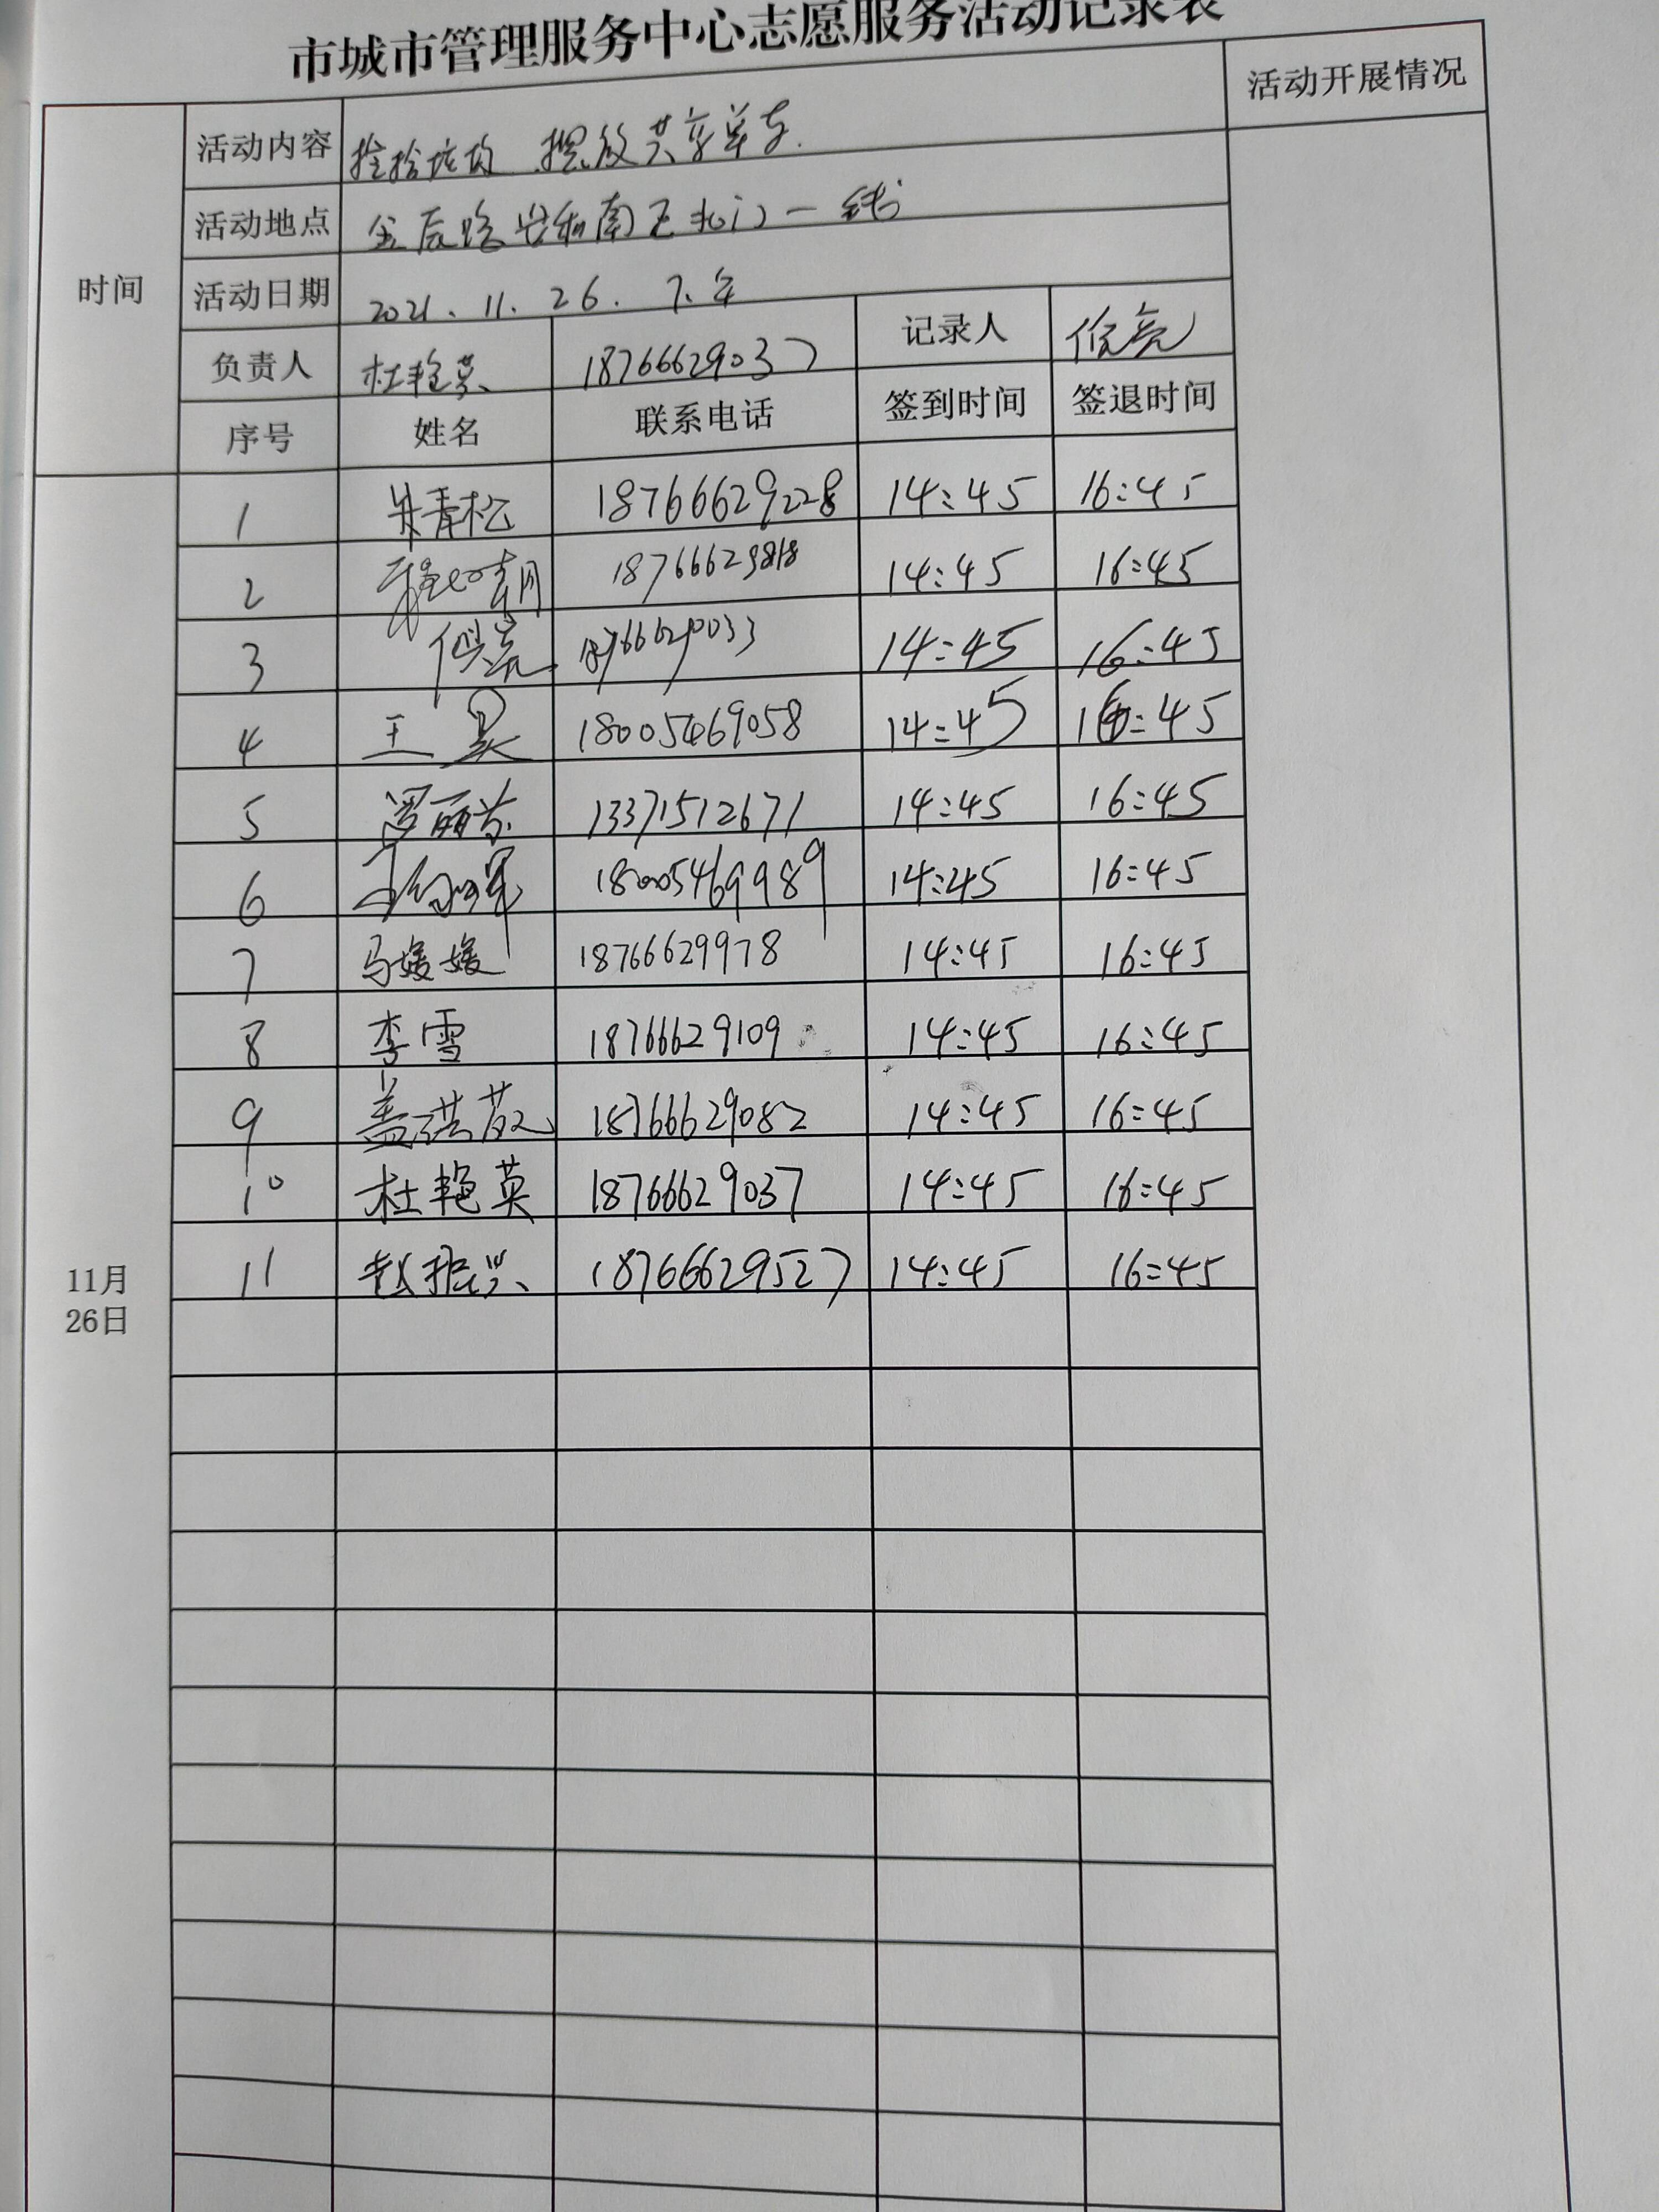 市城市管理服务中心志愿服务活动记录表
活动开展情况
时间
活动内容 捡拾垃圾 摆放共享单车.
活动地点 南区北门一线
活动日期 2021.11.26. 下午
负责人 杜艳英 18766629037 记录人
序号 姓名 联系电话 签到时间 签退时间
11月
26日
1 朱青松 18766629228 14:45 16:45
2 14:45 16:45
3 18766629033 14:45 16:45
4 王昊 18005469058 14:45 16:45
5 13371512671 14:45 16:45
6 18005469989 14:45 16:45
7 马媛媛 18766629978 14:45 16:45
8 李雪 18766629109 14:45 16:45
9 18766629082 14:45 16:45
10 杜艳英 18766629037 14:45 16:45
11 赵振兴 18766629527 14:45 16:45